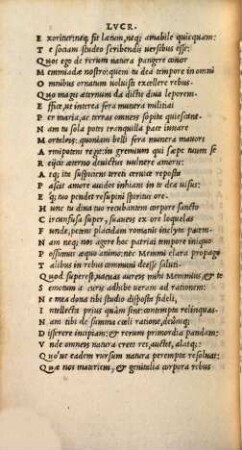 LVCR.
E xoritur:neq; fit lætum,neq; amabile quicquam:
T e sociam studeo scribendis uersibus esse:
Q uos ego de rerum natura pangere conor
M emmiadæ nostro:quem tu dea tempore in omni
O mnibus ornatum uoluisti excellere rebus.
Q uo magis æternum da dictis diua leporem.
E ffice,ut interea fera munera militiai
P er maria,ac terras omneis sopita quiescant.
N am tu sola potes tranquilla pace iuuare
M ortaleis: quoniam belli fera munera mauors
A rmipotens regit:in gremium qui sæpe tuum se
R eiicit æterno deuictus uulnere amoris:
A tq; ita suspiciens tereti ceruice reposta
P ascit amore auidos inhians in te dea uisus:
E q; tuo pendet resupini spiritus ore.
H unc tu diua tuo recubantem corpore sancto
C ircunfusa super, suaueis ex ore loquelas
F unde,petens placidam romanis inclyte pacem.
N am neq; nos agere hoc patriai tempore iniquo
P ossimus æquo animo;nec Memmi clara propago
T alibus in rebus communi deesse saluti.
Q uod superest,uacuas aureis mihi Memmius,& te
S emotum a curis adhibe ueram ad rationem:
N e mea dona tibi studio disposta fideli,
I ntellecta prius quàm sint: contempta relinquas.
N am tibi de summa cœli ratione,deûmq;
D isserere incipiam:& rerum primordia pandam:
V nde omneis natura creet res,auctet, alatq;:
Q uo'ue eadem rursum natura perempta resoluat:
Q uæ nos materiem, & genitalia corpora rebus